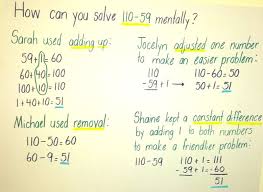 How can you solve 110-59 mentally?
Sarah used adding up:
59+1=60
60+40=100
100+10=110
1+40+10=51
Michael used removal:
110-50=60
60-9=51
Jocelyn adjusted one number
to make an easier problem:
110
-59+1→
110-60=50
50+1=51
Shaine kept a constant difference
by adding 1 to both numbers
to make a friendlier problem:
110-59
110+1=111
-59+1=-60
51